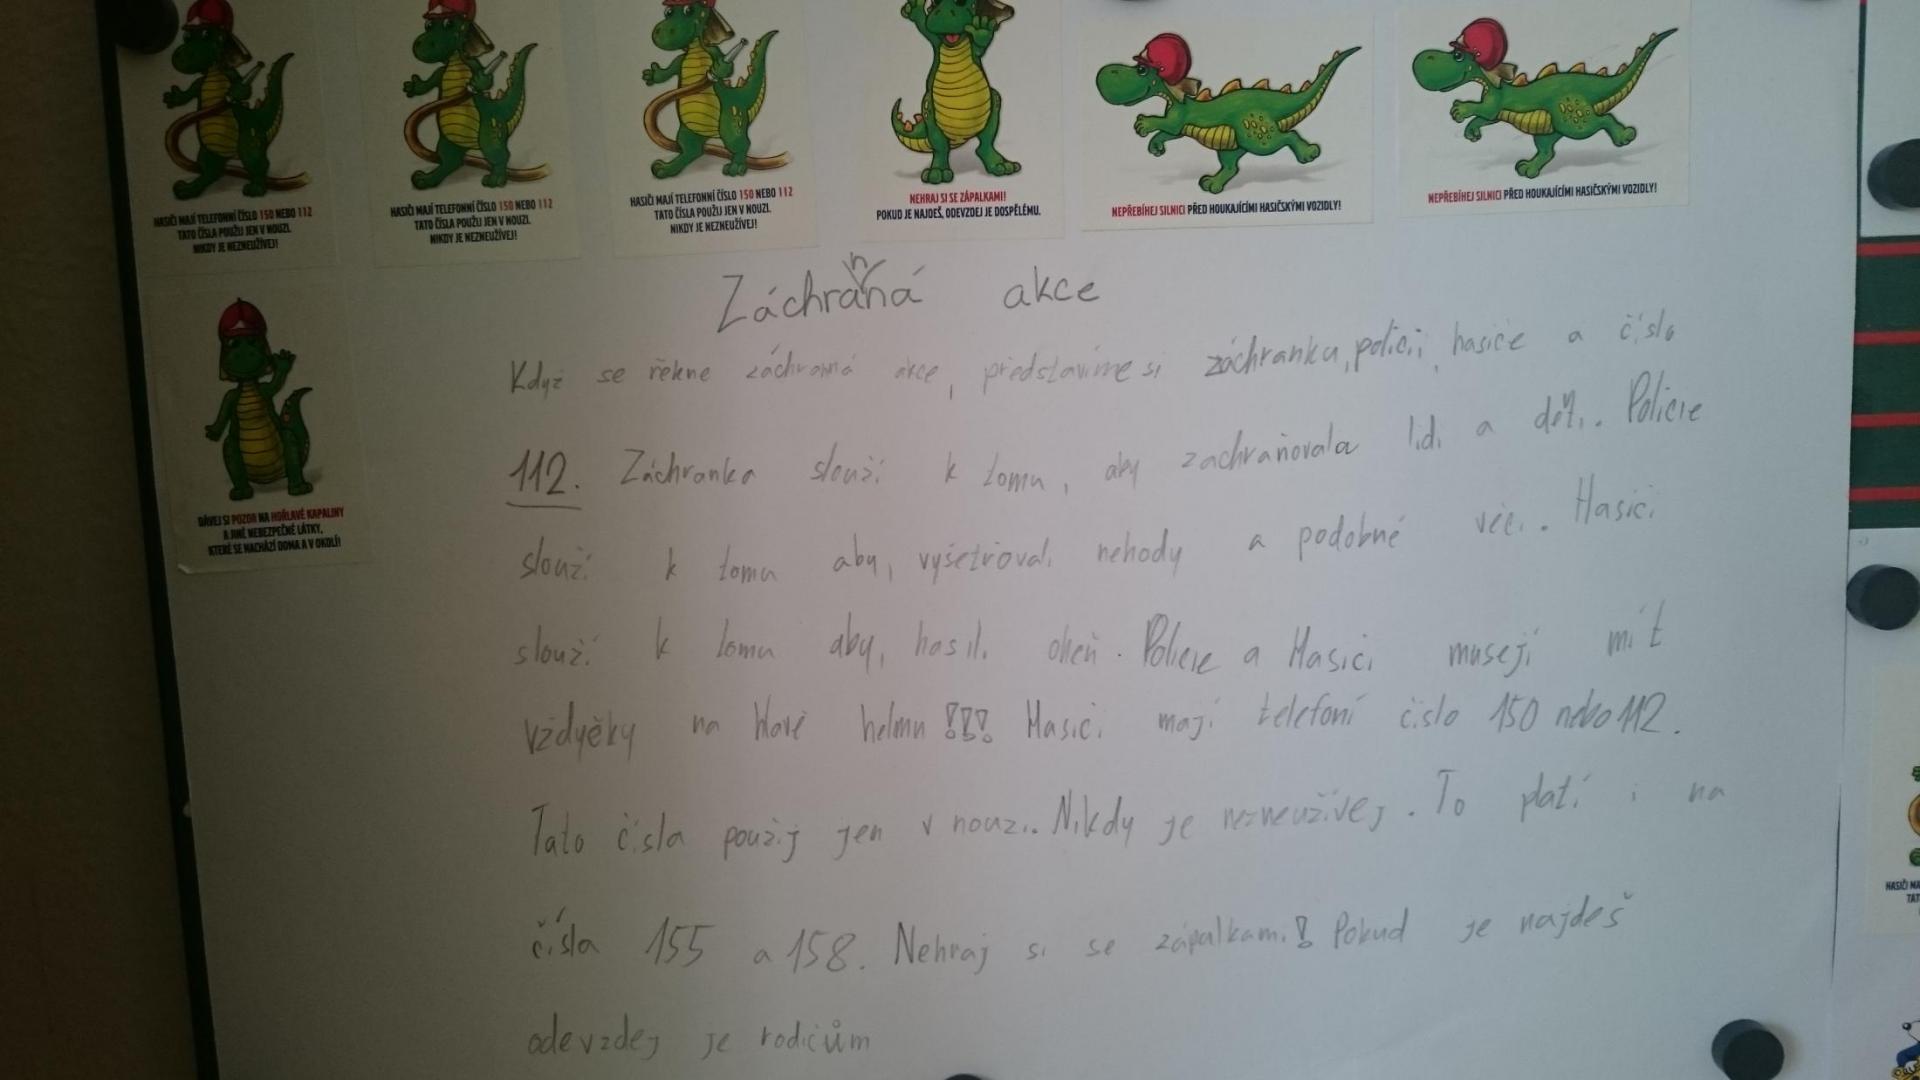 HASIČI MAJÍ TELEFONNÍ ČÍSLO 150 NEBO 112
TATO ČÍSLA POUŽIJ JEN V NOUZI.
NIKDY JE NEZNEUŽÍVEJ!
HASIČI MAJÍ TELEFONNÍ ČÍSLO 150 NEBO 112
TATO ČÍSLA POUŽIJ JEN V NOUZI.
NIKDY JE NEZNEUŽÍVEJ!
HASIČI MAJÍ TELEFONNÍ ČÍSLO 150 NEBO 112
TATO ČÍSLA POUŽIJ JEN V NOUZI.
NIKDY JE NEZNEUŽÍVEJ!
NEHRAJ SI SE ZÁPALKAMI!
POKUD JE NAJDEŠ, ODEVZDEJ JE DOSPĚLÉMU.
NEPŘEBÍHEJ SILNICI PŘED HOUKAJÍCÍMI HASIČSKÝMI VOZIDLY!
NEPŘEBÍHEJ SILNICI PŘED HOUKAJÍCÍMI HASIČSKÝMI VOZIDLY!
DÁVEJ SI POZOR NA HOŘLAVÉ KAPALINY
A JINÉ NEBEZPEČNÉ LÁTKY,
KTERÉ SE NACHÁZÍ DOMA A V OKOLÍ!
Záchranná akce
Když se řekne záchranná akce, představíme si záchranku, policii, hasiče a číslo
112. Záchranka slouží k tomu, aby zachraňovala lidi a děti. Policie
slouží k tomu aby, vyšetřovali nehody a podobné věci. Hasiči
slouží k tomu aby, hasili oheň. Policie a Hasiči musejí mít
vždyěky na hlavě helmu!!! Hasiči mají telefoní číslo 150 nebo 112.
Tato čísla použij jen v nouzi. Nikdy je nezneužívej. To platí i na
čísla 155 a 158. Nehraj si se zápalkami! Pokud je najdeš
odevzdej je rodičům
HASIČI MA
TAT